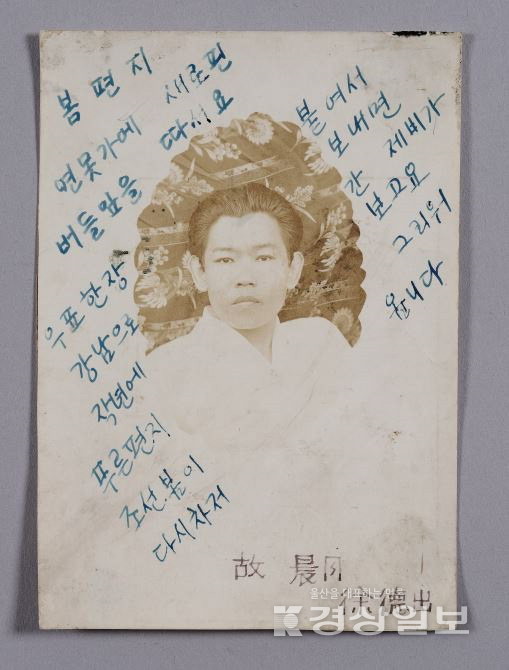 봄 편 지
연못가에 새로핀
버들잎을 따서요
우표한장 붙여서
강남으로 보내면
작년에 간 제비가
푸른편지 보고요
조선봄이 그리워
다시차저 옵니다
故 晨月
德出
울산을 대표하는 신문
경상일보